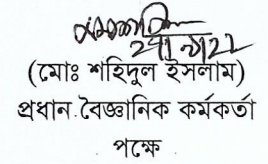 (মোঃ শহিদুল ইসলাম)
প্রধান বৈজ্ঞানিক কর্মকর্তা
পক্ষে